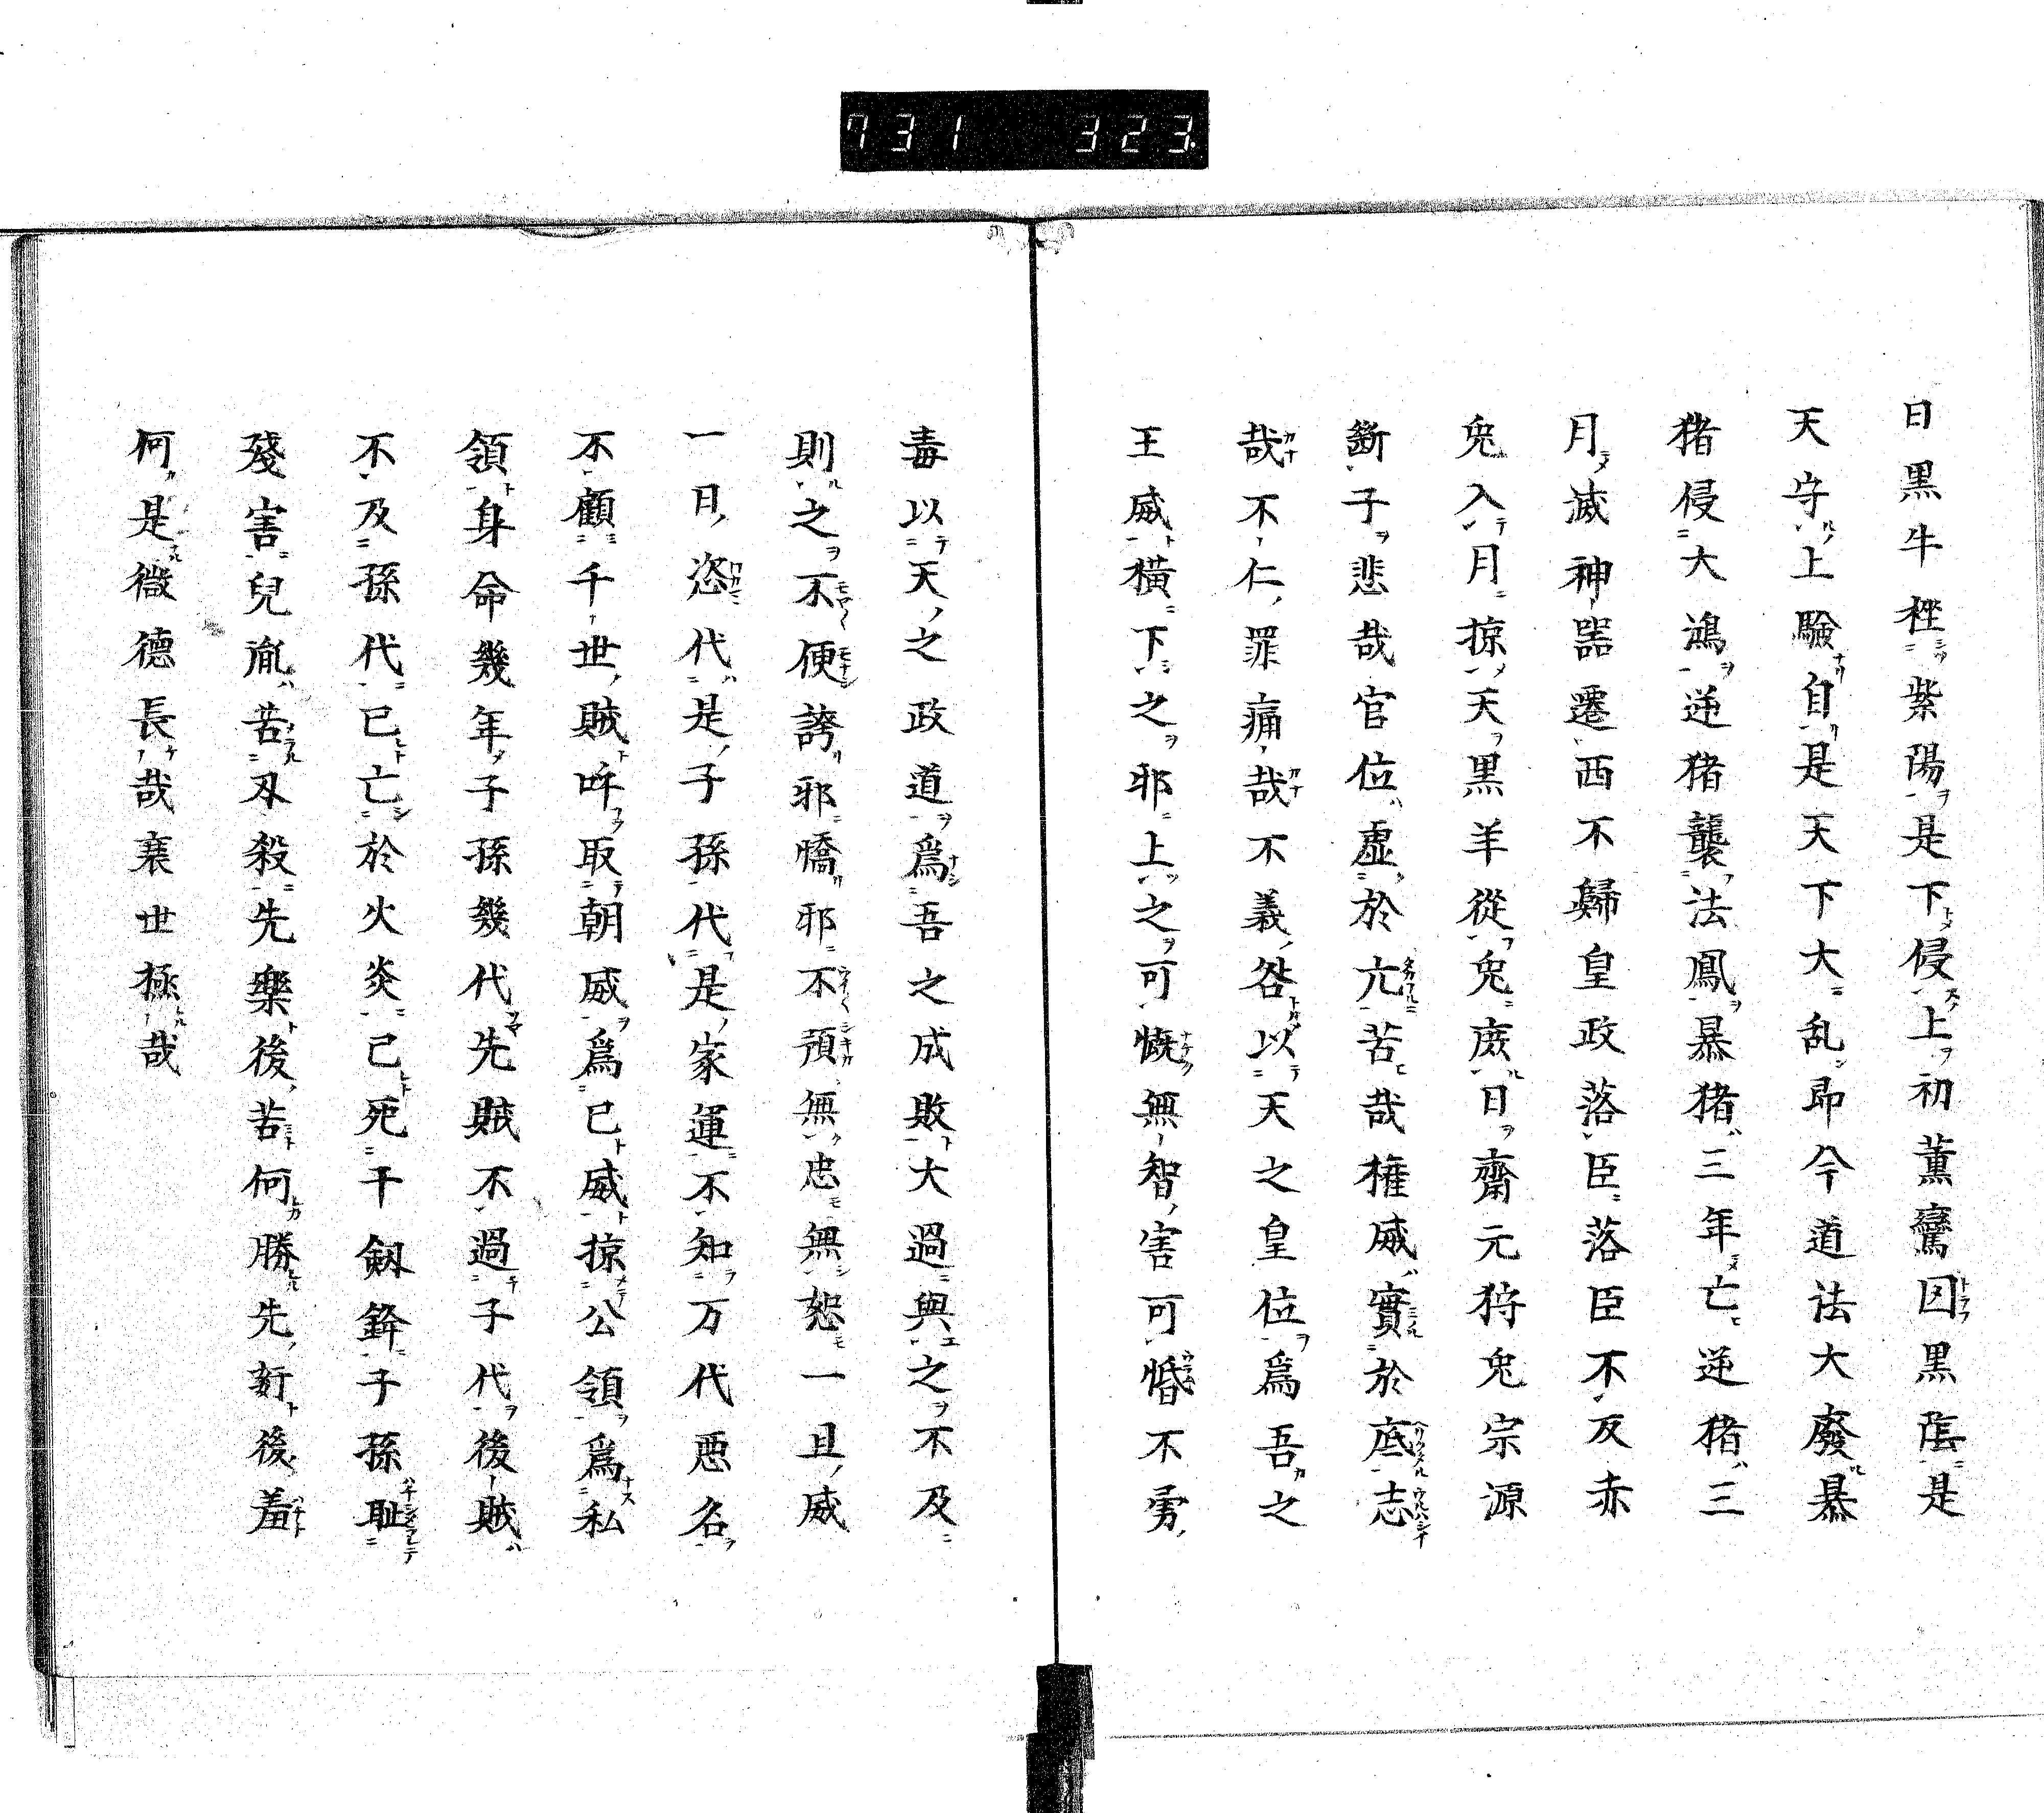 731 323.
日黒牛桎紫陽是下侵上初薫鸞囚黒蔭是
天守上驗自是天下大乱即今道法大廢暴
猪侵大鴻逆猪襲法鳳暴猪三年亡逆猪三
月滅神器遷西不歸皇政落臣落臣不及赤
兎入月掠天黒羊從兎廃日齋元狩兎宗源
斷子悲哉官位虚於亢苦哉権威實於底志
哉不仁罪痛哉不義咎以天之皇位爲吾之
王威横下之邪上之可慨無智害可惛不勇
毒以天之政道爲吾之成敗大過與之不及
則之不便誇邪憍邪不預無忠無恕一旦威
一日恣代是子孫代是家運不知万代悪名
不顧千世賊呼取朝威爲己威掠公領爲私
領身命幾年子孫幾代先賊不過子代後賊
不及孫代已亡於火炎已死于劔鋒子孫耻
殘害兒胤苦刄殺先樂後苦何勝先後羞
何是微德長哉衰世極哉